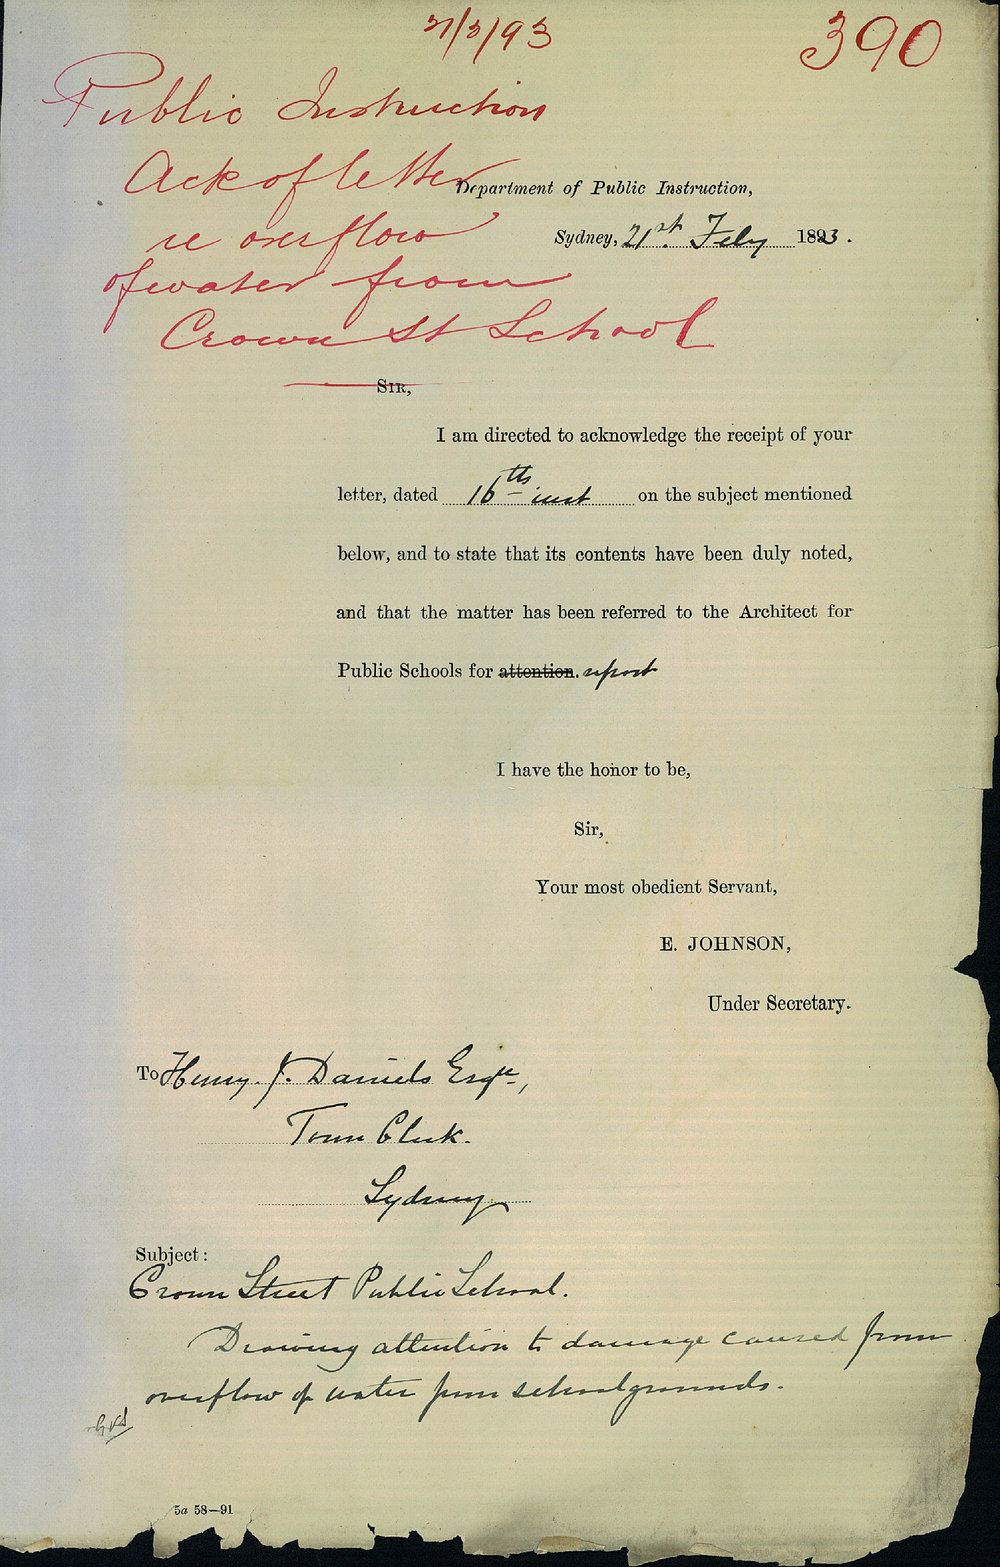 21/2/93
390
Public Instruction
Ack of letter
re overflow
of water from
Crown St School
Department of Public Instruction,
Sydney, 21st Feby 1893.
SIR,
I am directed to acknowledge the receipt of your
letter, dated 16th inst on the subject mentioned
below, and to state that its contents have been duly noted,
and that the matter has been referred to the Architect for
Public Schools for attention. report
I have the honor to be,
Sir,
Your most obedient Servant,
E. JOHNSON,
Under Secretary.
To Henry. J. Daniels Esqre,
Town Clerk.
Sydney
Subject:
Crown Street Public School.
Drawing attention to damage caused from
overflow of water from school grounds.
5a 58—91